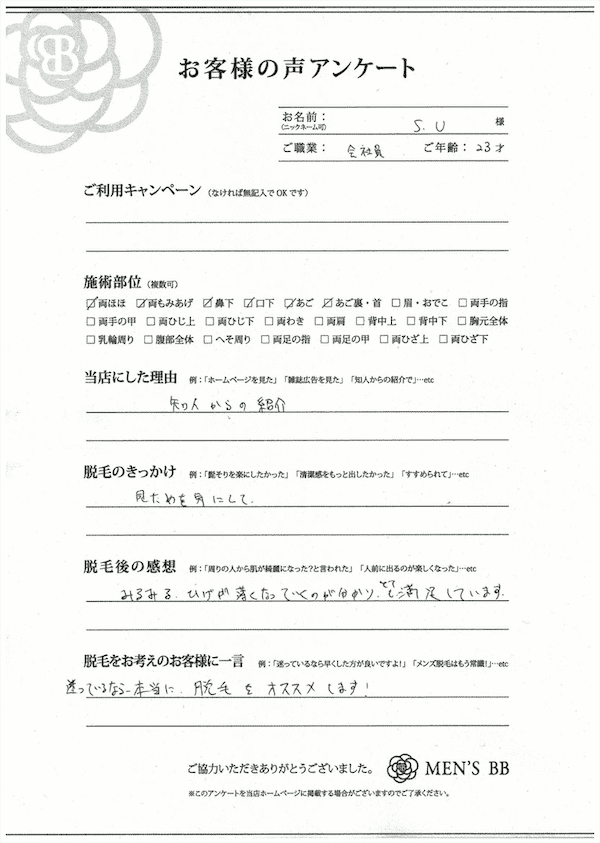 BB
お客様の声アンケート
お名前：
(ニックネーム可)
S. U 様
ご職業： 会社員 ご年齢： 23才
ご利用キャンペーン（なければ無記入でOKです）
施術部位（複数可）
☑両ほほ ☑両もみあげ ☑鼻下 ☑口下 ☑あご ☑あご裏・首 □眉・おでこ □両手の指
□両手の甲 □両ひじ上 □両ひじ下 □両わき □両肩 □背中上 □背中下 □胸元全体
□乳輪周り □腹部全体 □へそ周り □両足の指 □両足の甲 □両ひざ上 □両ひざ下
当店にした理由 例：「ホームページを見た」「雑誌広告を見た」「知人からの紹介で」…etc
知人からの紹介
脱毛のきっかけ 例：「髭そりを楽にしたかった」「清潔感をもっと出したかった」「すすめられて」…etc
見ためを気にして.
脱毛後の感想 例：「周りの人から肌が綺麗になった？と言われた」「人前に出るのが楽しくなった」…etc
みるみる、ひげが薄くなっていくのが分かり、とても満足しています.
脱毛をお考えのお客様に一言 例：「迷っているなら早くした方が良いですよ！」「メンズ脱毛はもう常識！」…etc
迷っているなら本当に、脱毛をオススメします！
ご協力いただきありがとうございました。 MEN'S BB
※このアンケートを当店ホームページに掲載する場合がございますのでご了承ください。